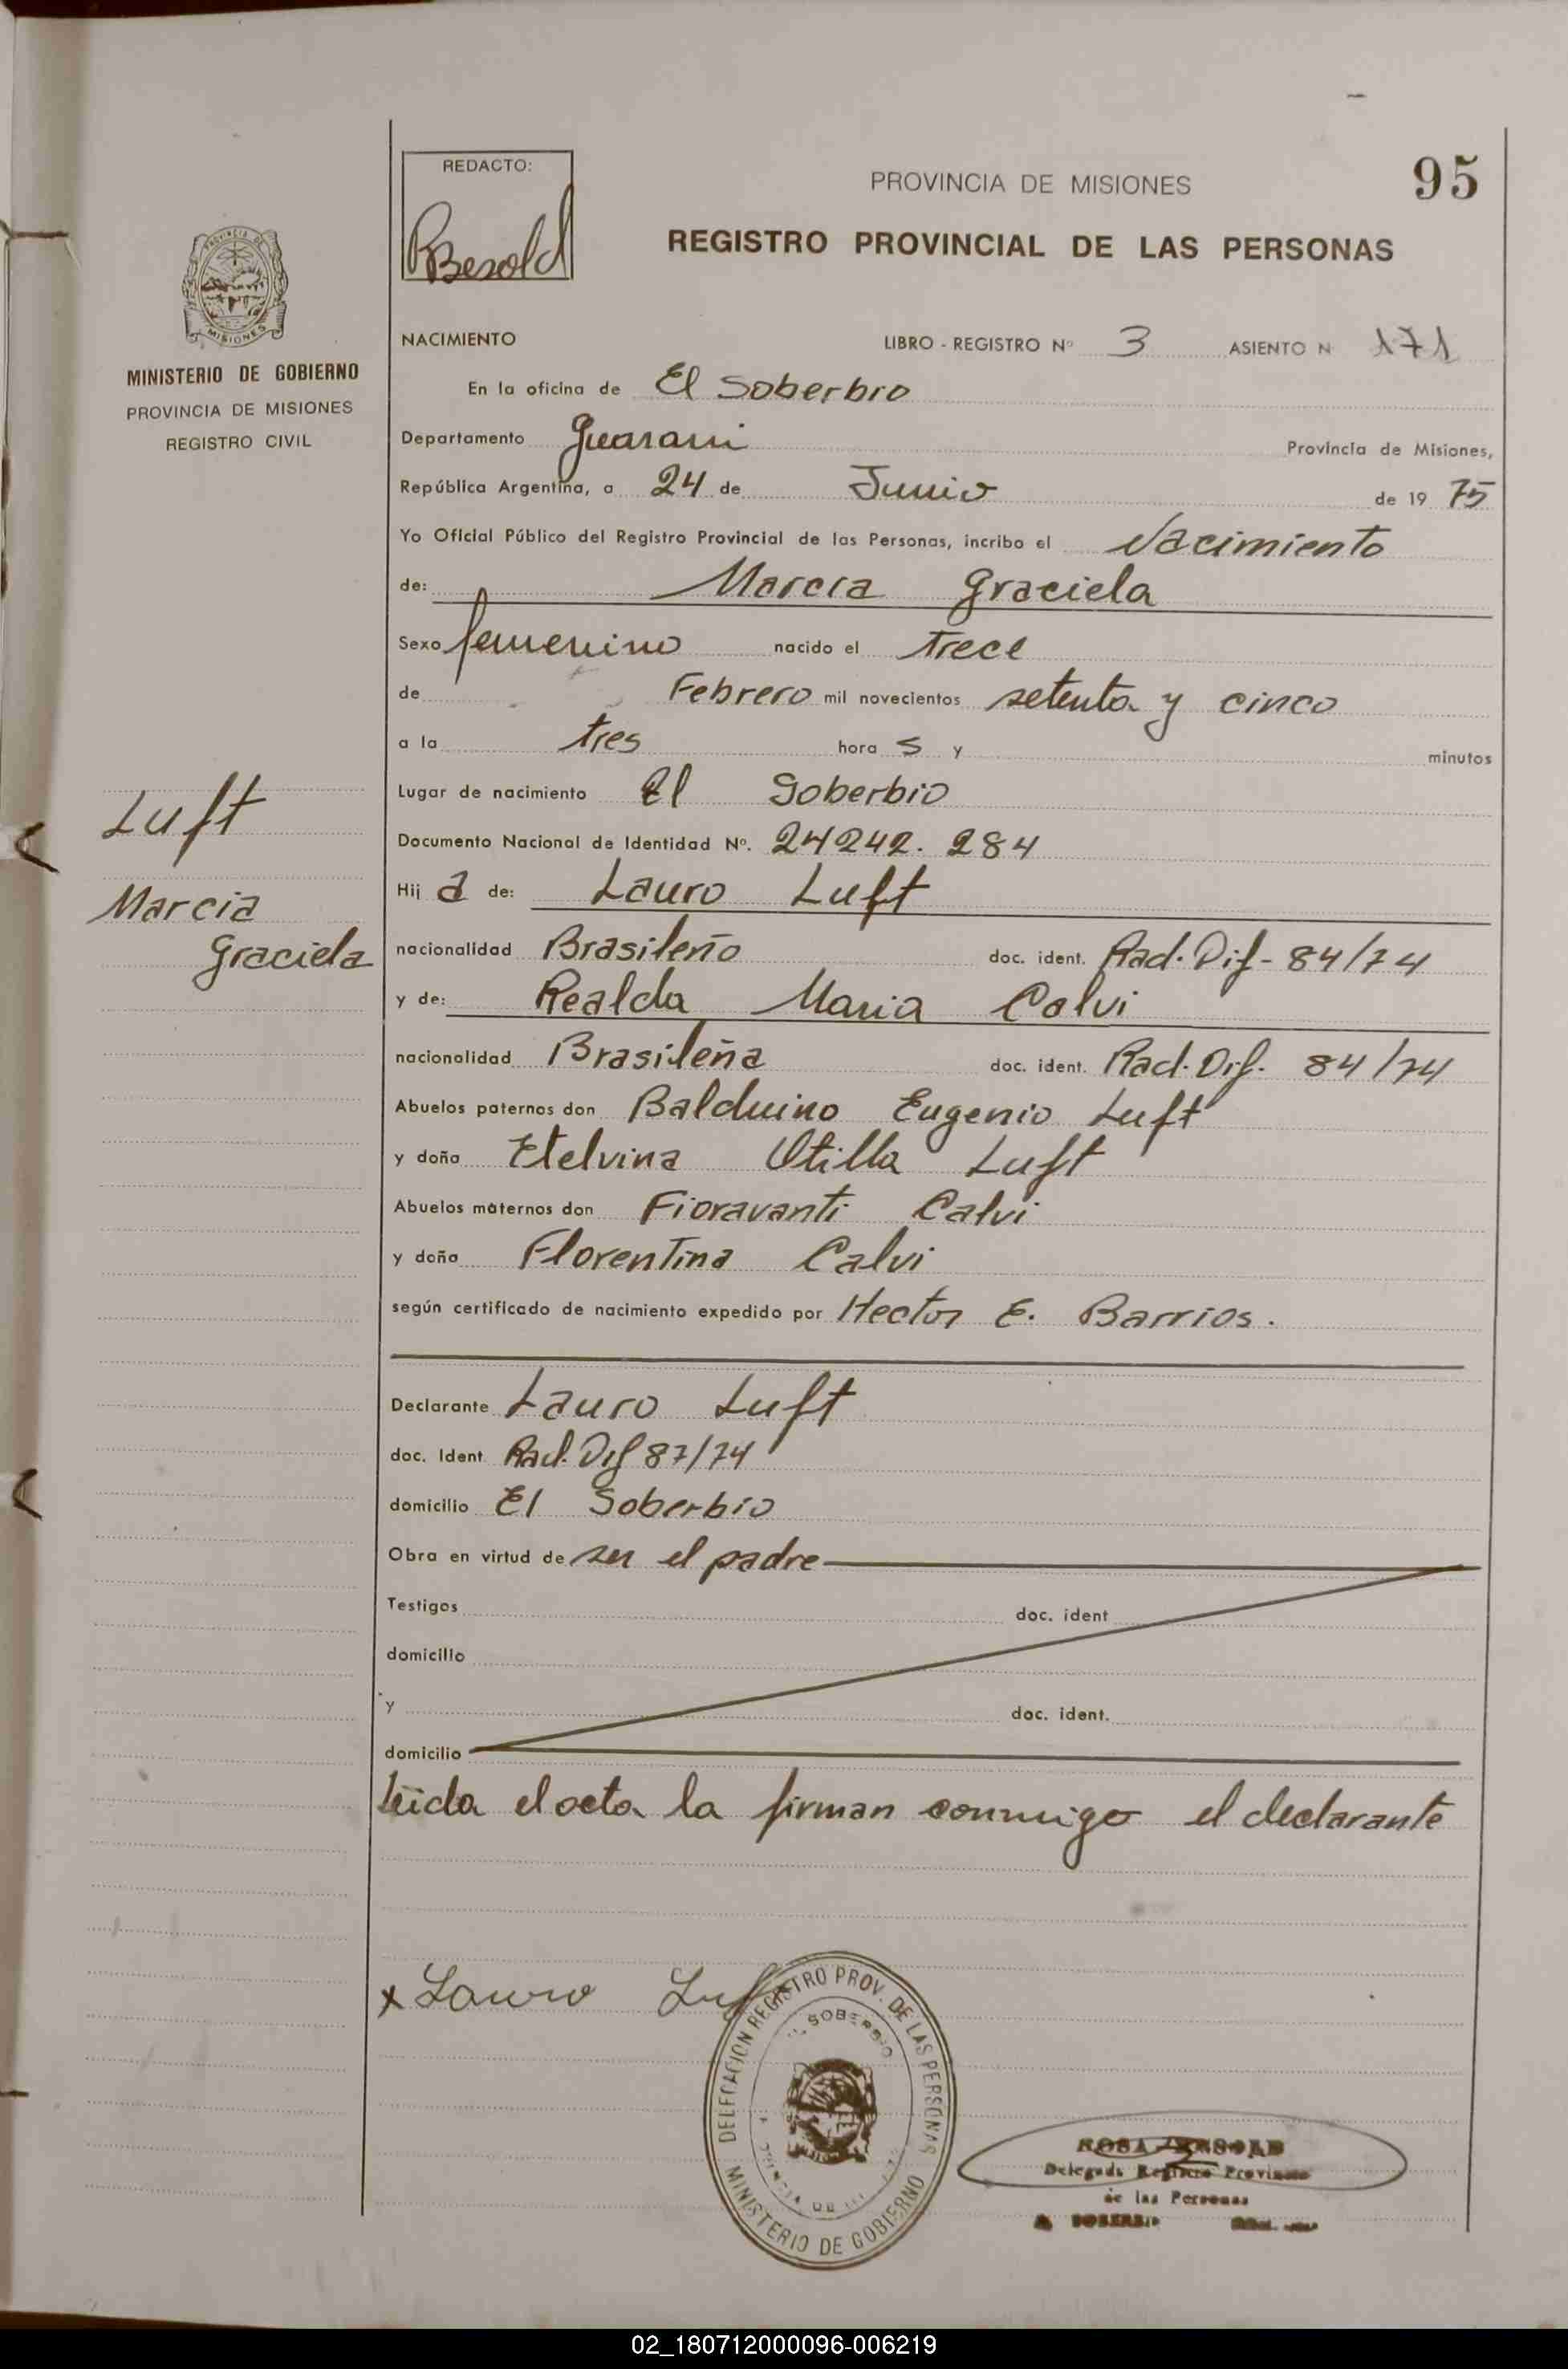 REDACTO:
Besold
PROVINCIA DE MISIONES
95
REGISTRO PROVINCIAL DE LAS PERSONAS
PROVINCIA DE
MISIONES
MINISTERIO DE GOBIERNO
PROVINCIA DE MISIONES
REGISTRO CIVIL
NACIMIENTO LIBRO - REGISTRO Nº 3 ASIENTO N 171
En la oficina de El Soberbio
Departamento Guarani Provincia de Misiones,
República Argentina, a 24 de Junio de 19 75
Yo Oficial Público del Registro Provincial de las Personas, incribo el Nacimiento
de: Marcia Graciela
Sexo femenino nacido el Trece
de Febrero mil novecientos setenta y cinco
a la tres hora s y minutos
Lugar de nacimiento El Soberbio
Documento Nacional de Identidad Nº. 24242.284
Luft
Marcia
Graciela
Hij a de: Lauro Luft
nacionalidad Brasileño doc. ident. Rad. Dif- 84/74
y de: Realda Maria Calvi
nacionalidad Brasileña doc. ident. Rad. Dif. 84/74
Abuelos paternos don Balduino Eugenio Luft
y doña Etelvina Otilla Luft
Abuelos maternos don Fioravanti Calvi
y doña Florentina Calvi
según certificado de nacimiento expedido por Hector E. Barrios.
Declarante Lauro Luft
doc. Ident Rad. Dif 87/74
domicilio El Soberbio
Obra en virtud de ser el padre
Testigos doc. ident
domicilio
y doc. ident.
domicilio
leida el acta la firman conmigo el declarante
x Lauro Luft
DELEGACION REGISTRO PROV. DE LAS PERSONAS
SOBERBIO
MINISTERIO DE GOBIERNO
ROSA BESOLD
Delegada Registro Provincial
de las Personas
SOBERBIO
02_180712000096-006219